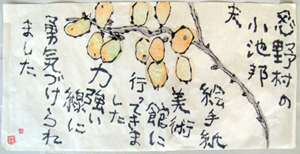 忍野村の
小池邦
夫
絵手紙
美術
館に
行ってきま
した
力強い
線に
勇気づけられ
ました